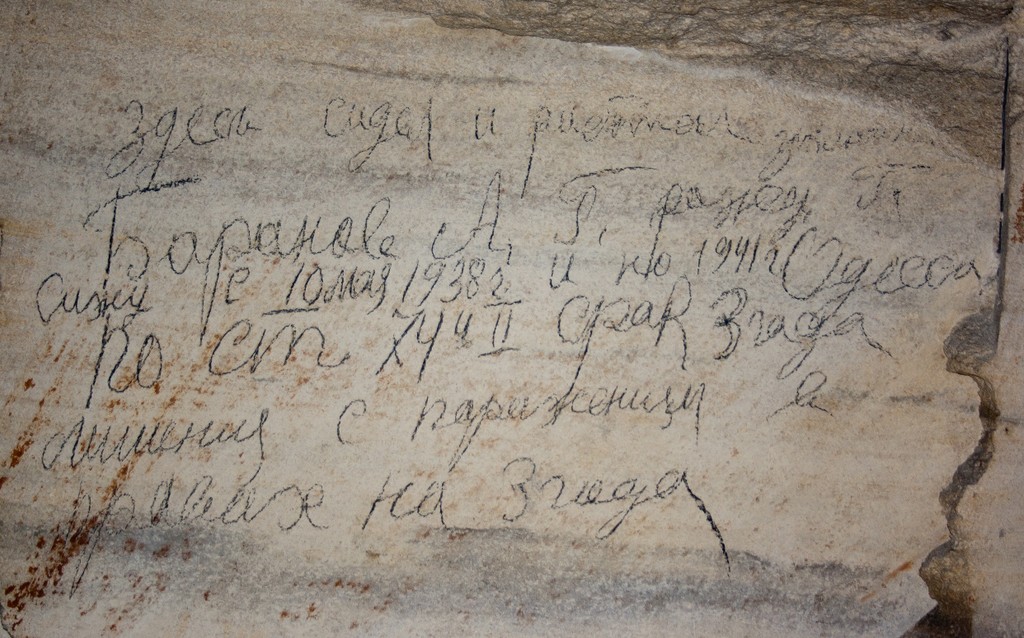 Здесь сидел и работал
Баранов А. Г. рожд. Г.
сижу с 10 мая 1938 г и по 1941 г Одесса
По ст ХУ ч II срок 3 года
лишения с паражения в
правах на 3 года